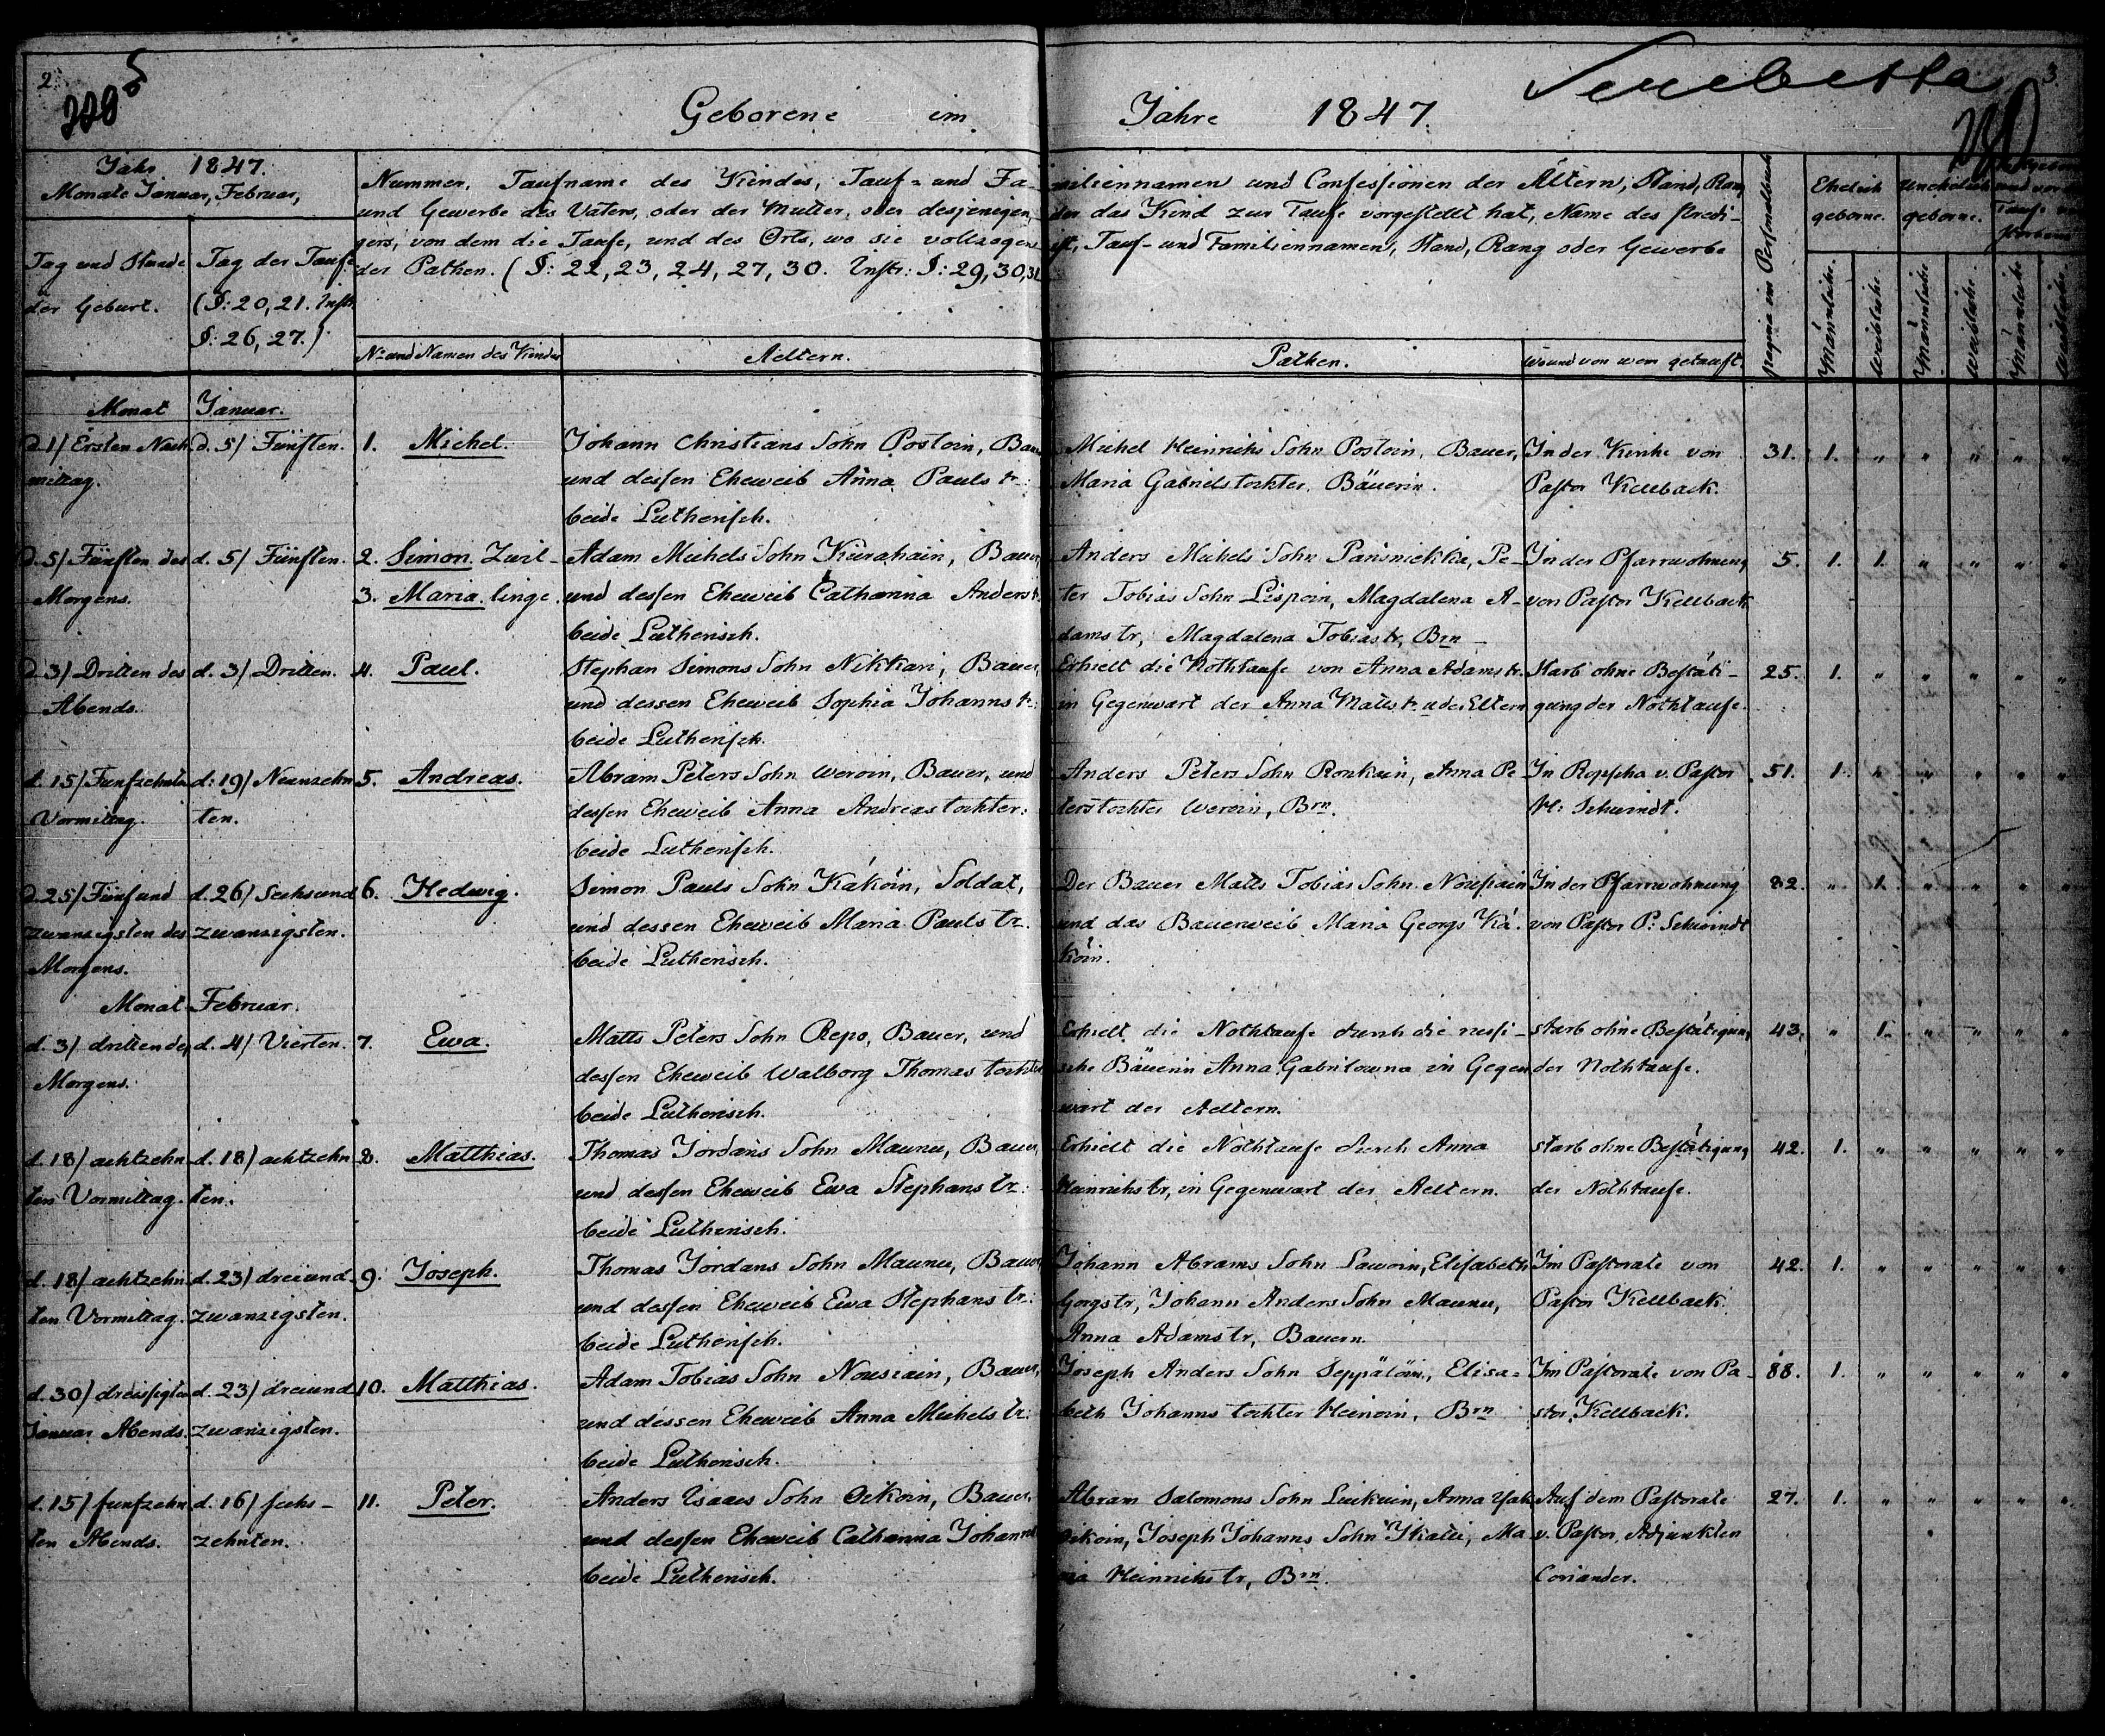 2.
3.
Geborene im Jahre 1847.
Jahr 1847.
Monate Januar, Februar,
Tag und Stunde der Geburt.
Tag der Taufe
(§: 20, 21. Instr.
§: 26, 27.)
Nummer, Taufname des Kindes, Tauf- und Familiennamen und Confessionen der Ältern, Stand, Rang
und Gewerbe des Vaters, oder der Mutter, oder desjenigen, der das Kind zur Taufe vorgestellt hat, Name des Predi-
gers, von dem die Taufe, und des Orts, wo sie vollzogen ist, Tauf- und Familiennamen, Stand, Rang oder Gewerbe
der Pathen. (§: 22, 23, 24, 27, 30. Instr: §: 29, 30, 31
No und Namen des Kindes
Aeltern.
Pathen.
Wo und von wem getauft.
Pagina im Personalbuch
Ehelich geborne.
Unehelich geborne.
und vor der Taufe
Männliche.
Weibliche.
Männliche
Weibliche.
Männliche
Weibliche.
Monat Januar.
d. 1/ Ersten Nach- d. 5/ Fünften. 1. Michel. Johann Christians Sohn Postoin, Bauer Michel Heinrichs Sohn Postoin, Bauer, In der Kirche von 31. 1. " " " " "
mittag. und dessen Eheweib Anna Pauls tr: Maria Gabrielstochter, Bäuerin. Pastor Kellback.
beide Lutherisch.
d. 5/ Fünften des d. 5/ Fünften. 2. Simon. Zwil- Adam Michels Sohn Kurahain, Bauer, Anders Michels Sohn Parisniekka, Pe- In der Pfarrwohnung 5. 1. 1. " " " "
Morgens. 3. Maria. linge. und dessen Eheweib Catharina Anderstr. ter Tobias Sohn Lispoin, Magdalena A- von Pastor Kellback
beide Lutherisch. dams tr, Magdalena Tobias tr, Brn
d. 3/ Dritten des d. 3/ Dritten. 4. Paul. Stephan Simons Sohn Nikkari, Bauer, Erhielt die Nothtaufe von Anna Adams tr. Starb ohne Bestäti- 25. 1. " " " " "
Abends. und dessen Eheweib Sophia Johanns tr: in Gegenwart der Anna Matts tr. u der Eltern gung der Nothtaufe.
beide Lutherisch.
d. 15/ Funfzehnten d: 19/ Neunzehn 5. Andreas. Abram Peters Sohn Weroin, Bauer, und Anders Peters Sohn Ronkain, Anna Pe- In Ropscha v. Pastor 51. 1. " " " " "
Vormittag. ten. dessen Eheweib Anna Andreastochter: terstochter Weroin, Brn. H: Schwindt.
beide Lutherisch.
d. 25/ Fünfund d. 26/ Sechsund 6. Hedwig. Simon Pauls Sohn Käköin, Soldat, Der Bauer Matts Tobias Sohn Nousiain In der Pfarrwohnung 82. " 1. " " " "
zwanzigsten des zwanzigsten. und dessen Eheweib Maria Pauls tr. und das Bauerweib Maria Georgs Kä- von Pastor P: Schwindt
Morgens. beide Lutherisch. köin.
Monat Februar.
d. 3/ dritten des d. 4/ Vierten. 7. Ewa. Matts Peters Sohn Repo, Bauer, und Erhielt die Nothtaufe durch die russi- starb ohne Bestätigung 43. " 1. " " " "
Morgens. dessen Eheweib Walborg Thomas tochter sche Bäuerin Anna Gabrilowna in Gegen der Nothtaufe.
beide Lutherisch. wart der Aeltern.
d. 18/ achtzehn d. 18/ achtzehn 8. Matthias. Thomas Jordans Sohn Maunu, Bauer, Erhielt die Nothtaufe durch Anna starb ohne Bestätigung 42. 1. " " " " "
ten Vormittag. ten. und dessen Eheweib Ewa Stephans tr: Heinrichs tr, in Gegenwart der Aeltern. der Nothtaufe.
beide Lutherisch.
d. 18/ achtzehn d. 23/ dreiund- 9. Joseph. Thomas Jordans Sohn Maunu, Bauer, Johann Abrams Sohn Lawoin, Elisabeth Im Pastorate von 42. 1. " " " " "
ten Vormittag. zwanzigsten. und dessen Eheweib Ewa Stephans tr: Gorgs tr, Johann Anders Sohn Maunu, Pastor Kellback.
beide Lutherisch. Anna Adams tr, Bauern.
d. 30/ dreissigsten d. 23/ dreiund 10. Matthias. Adam Tobias Sohn Nousiain, Bauer, Joseph Anders Sohn Seppäläin, Elisa- Im Pastorate von Pa- 88. 1. " " " " "
Januar Abends. zwanzigsten. und dessen Eheweib Anna Michels tr: beth Johanns tochter Heinoin, Brn stor Kellback.
beide Lutherisch.
d. 15/ funfzehn d. 16/ sechs- 11. Peter. Anders Isaacs Sohn Oikoin, Bauer, Abram Salomons Sohn Luikuin, Anna Isak Auf dem Pastorate 27. 1. " " " " "
ten Abends. zehnten. und dessen Eheweib Catharina Johanns Oikoin, Joseph Johanns Sohn Ikalli, Ma- v. Pastor, Adjunkten
beide Lutherisch. ria Heinrichs tr, Brn. Coriander.